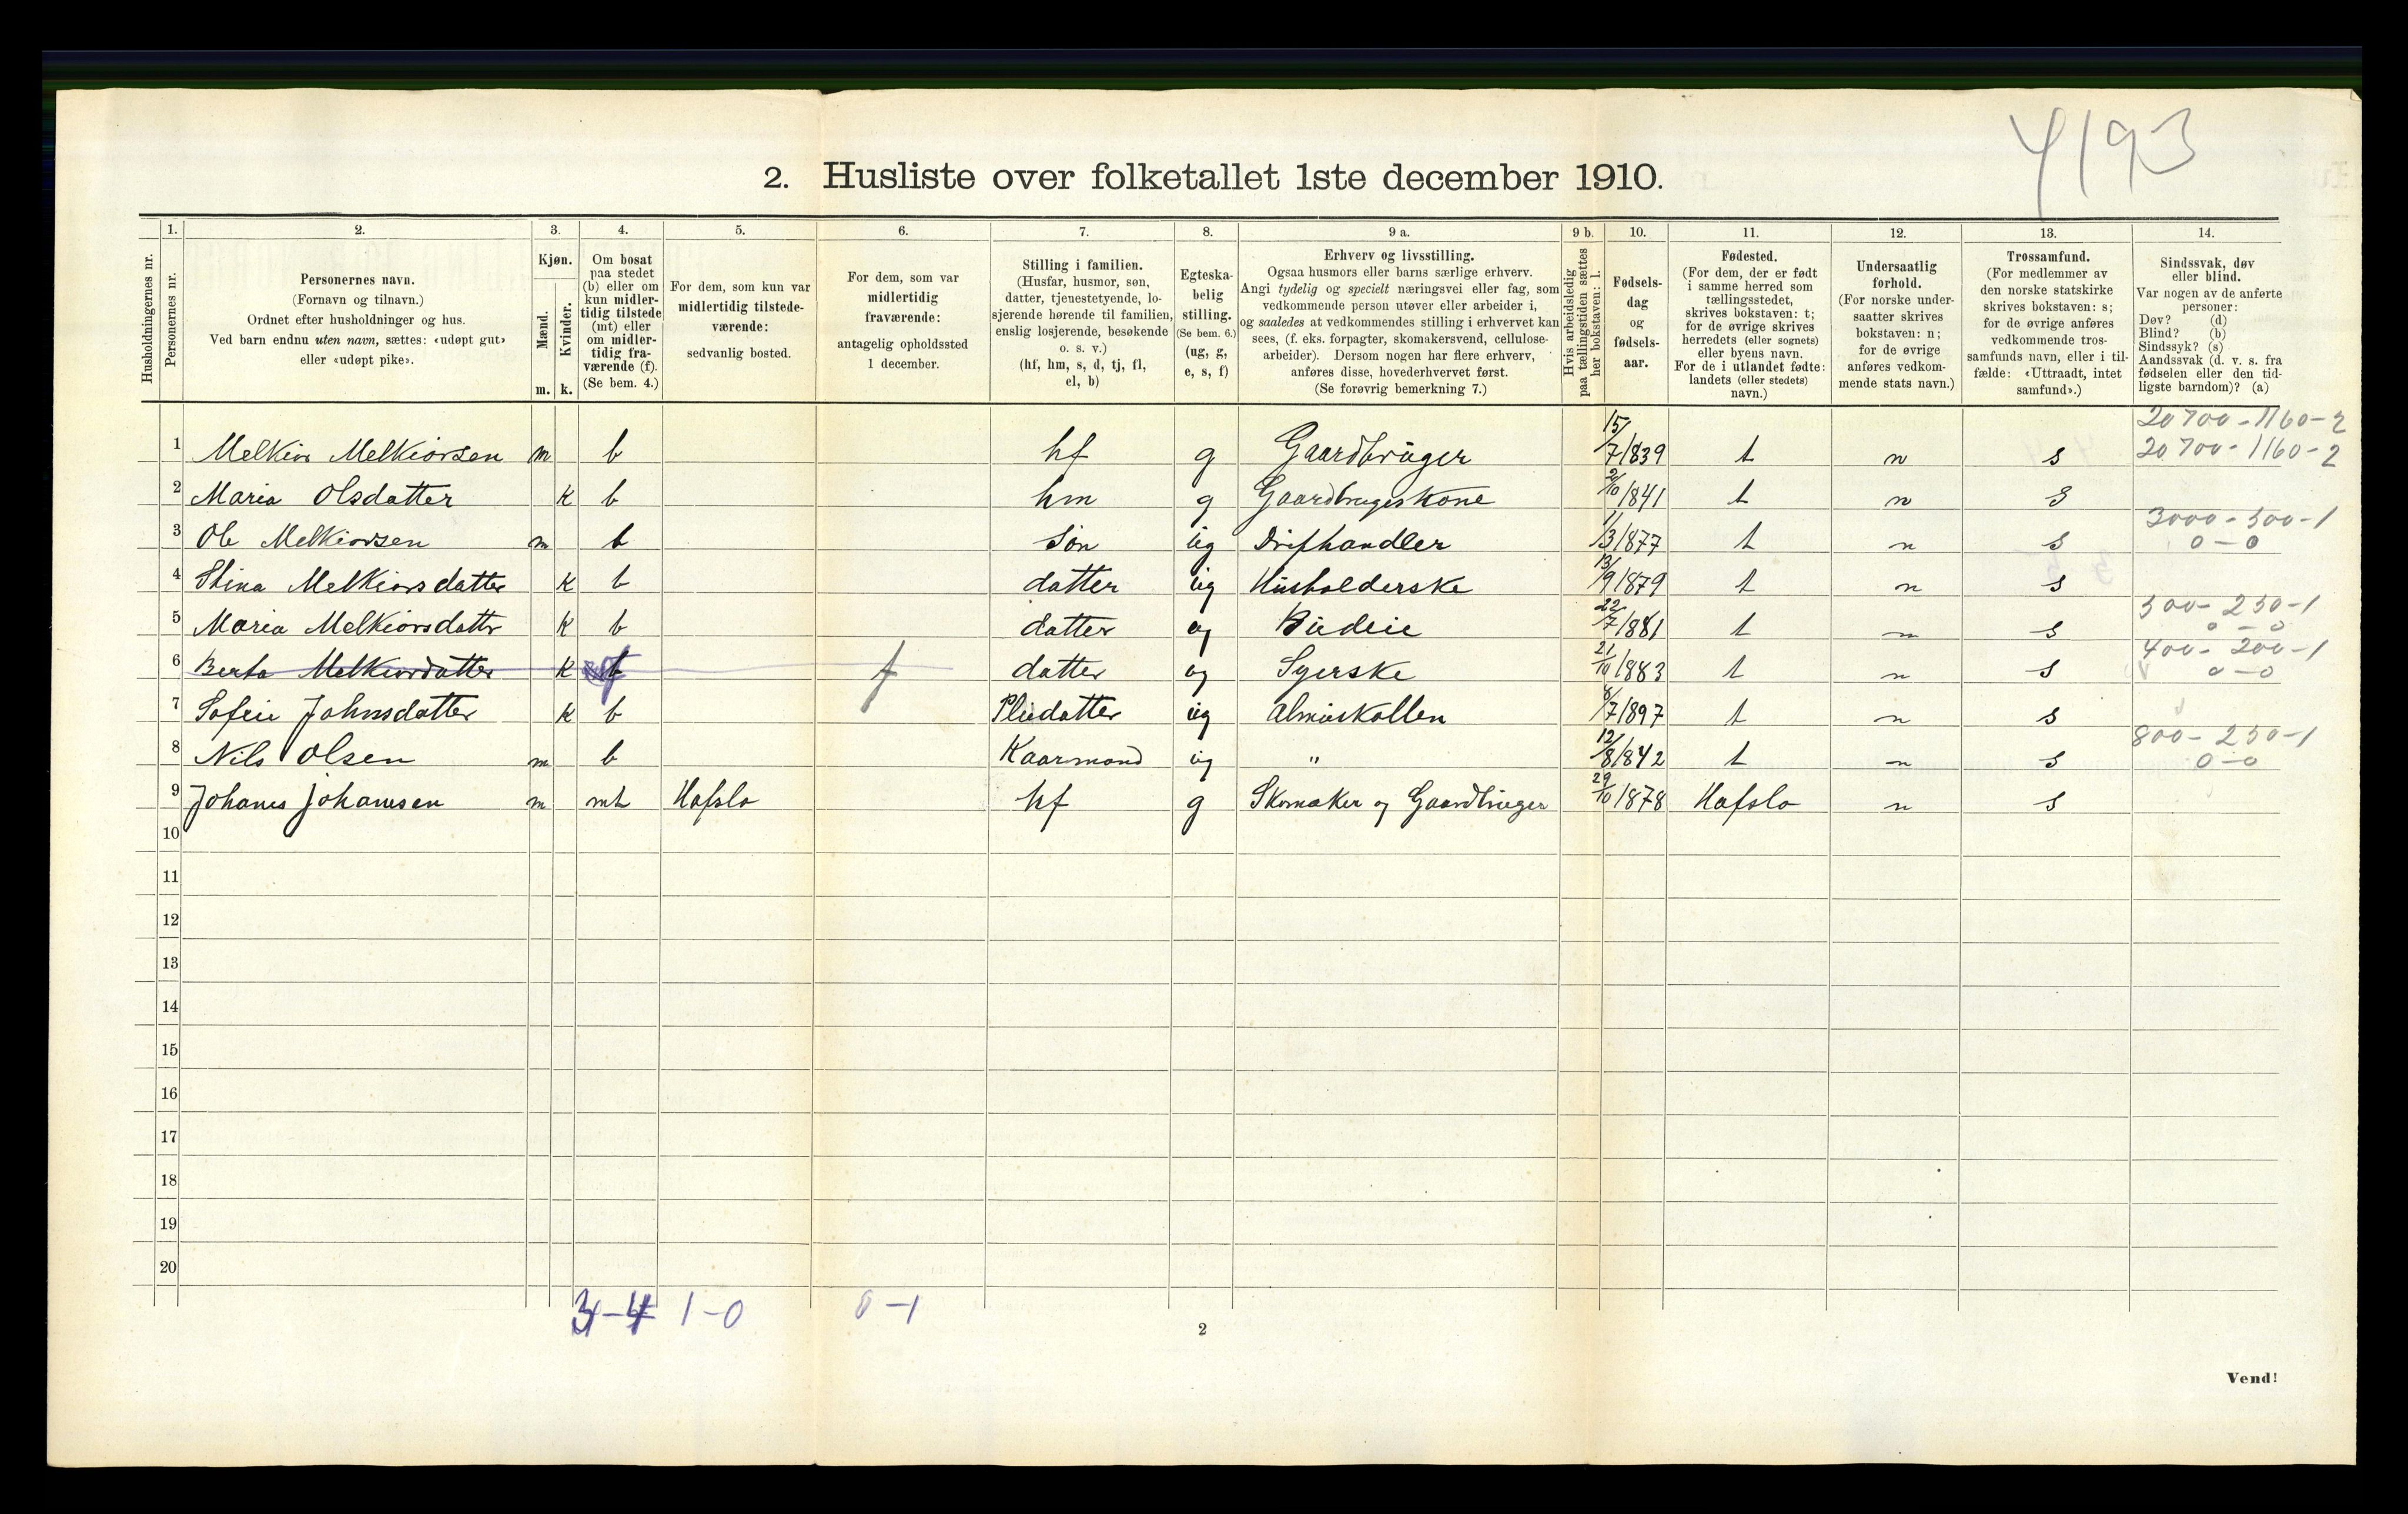 4193
2. Husliste over folketallet 1ste december 1910.
1. 2. 3. 4. 5. 6. 7. 8. 9 a. 9 b. 10. 11. 12. 13. 14.
Husholdningernes nr.
Personernes nr.
Personernes navn.
(Fornavn og tilnavn.)
Ordnet efter husholdninger og hus.
Ved barn endnu uten navn, sættes: «udøpt gut»
eller «udøpt pike».
Kjøn.
Mænd.
Kvinder.
m. k.
Om bosat
paa stedet
(b) eller om
kun midler-
tidig tilstede
(mt) eller
om midler-
tidig fra-
værende (f).
(Se bem. 4.)
For dem, som kun var
midlertidig tilstede-
værende:
sedvanlig bosted.
For dem, som var
midlertidig
fraværende:
antagelig opholdssted
1 december.
Stilling i familien.
(Husfar, husmor, søn,
datter, tjenestetyende, lo-
sjerende hørende til familien,
enslig losjerende, besøkende
o. s. v.)
(hf, hm, s, d, tj, fl,
el, b)
Egteska-
belig
stilling.
(Se bem. 6.)
(ug, g,
e, s, f)
Erhverv og livsstilling.
Ogsaa husmors eller barns særlige erhverv.
Angi tydelig og specielt næringsvei eller fag, som
vedkommende person utøver eller arbeider i,
og saaledes at vedkommendes stilling i erhvervet kan
sees, (f. eks. forpagter, skomakersvend, cellulose-
arbeider). Dersom nogen har flere erhverv,
anføres disse, hovederhvervet først.
(Se forøvrig bemerkning 7.)
Hvis arbeidsledig
paa tællingstiden sættes
her bokstaven: l.
Fødsels-
dag
og
fødsels-
aar.
Fødested.
(For dem, der er født
i samme herred som
tællingsstedet,
skrives bokstaven: t;
for de øvrige skrives
herredets (eller sognets)
eller byens navn.
For de i utlandet fødte:
landets (eller stedets)
navn.)
Undersaatlig
forhold.
(For norske under-
saatter skrives
bokstaven: n;
for de øvrige
anføres vedkom-
mende stats navn.)
Trossamfund.
(For medlemmer av
den norske statskirke
skrives bokstaven: s;
for de øvrige anføres
vedkommende tros-
samfunds navn, eller i til-
fælde: «Uttraadt, intet
samfund».)
Sindssvak, døv
eller blind.
Var nogen av de anførte
personer:
Døv? (d)
Blind? (b)
Sindssyk? (s)
Aandssvak (d. v. s. fra
fødselen eller den tid-
ligste barndom)? (a)
20700-1160-2
1 Melkior Melkiorsen m b hf g Gaardbrüger 15/7/839 t n s 20700-1160-2
2 Maria Olsdatter k b hm g Gaardbrugerskone 2/10/841 t n s
3000-500-1
3 Ole Melkiorsen m b Søn üg Drifhandler 1/3/877 t n s 0-0
4 Stina Melkiorsdatter k b datter üg Hüsholderske 13/9/879 t n s
500-250-1
5 Maria Melkiorsdattr k b datter ug Büdeie 22/7/881 t n s 0-0
400-200-1
6 Berta Melkiordatter k f f datter ug Syerske 21/10/883 t n s 0-0
7 Sofeie Johnsdatter k b Pleidatter üg Almüskollen 8/7/897 t n s
800-250-1
8 Nils Olsen m b Kaarmand üg " 12/8/842 t n s 0-0
9 Johanes Johanesen m mt Hafslo hf g Skomaker og Gaardbrüger 29/10/1878 Hafslo n s
10
11
12
13
14
15
16
17
18
19
20
3-4 1-0 0-1
2
Vend!